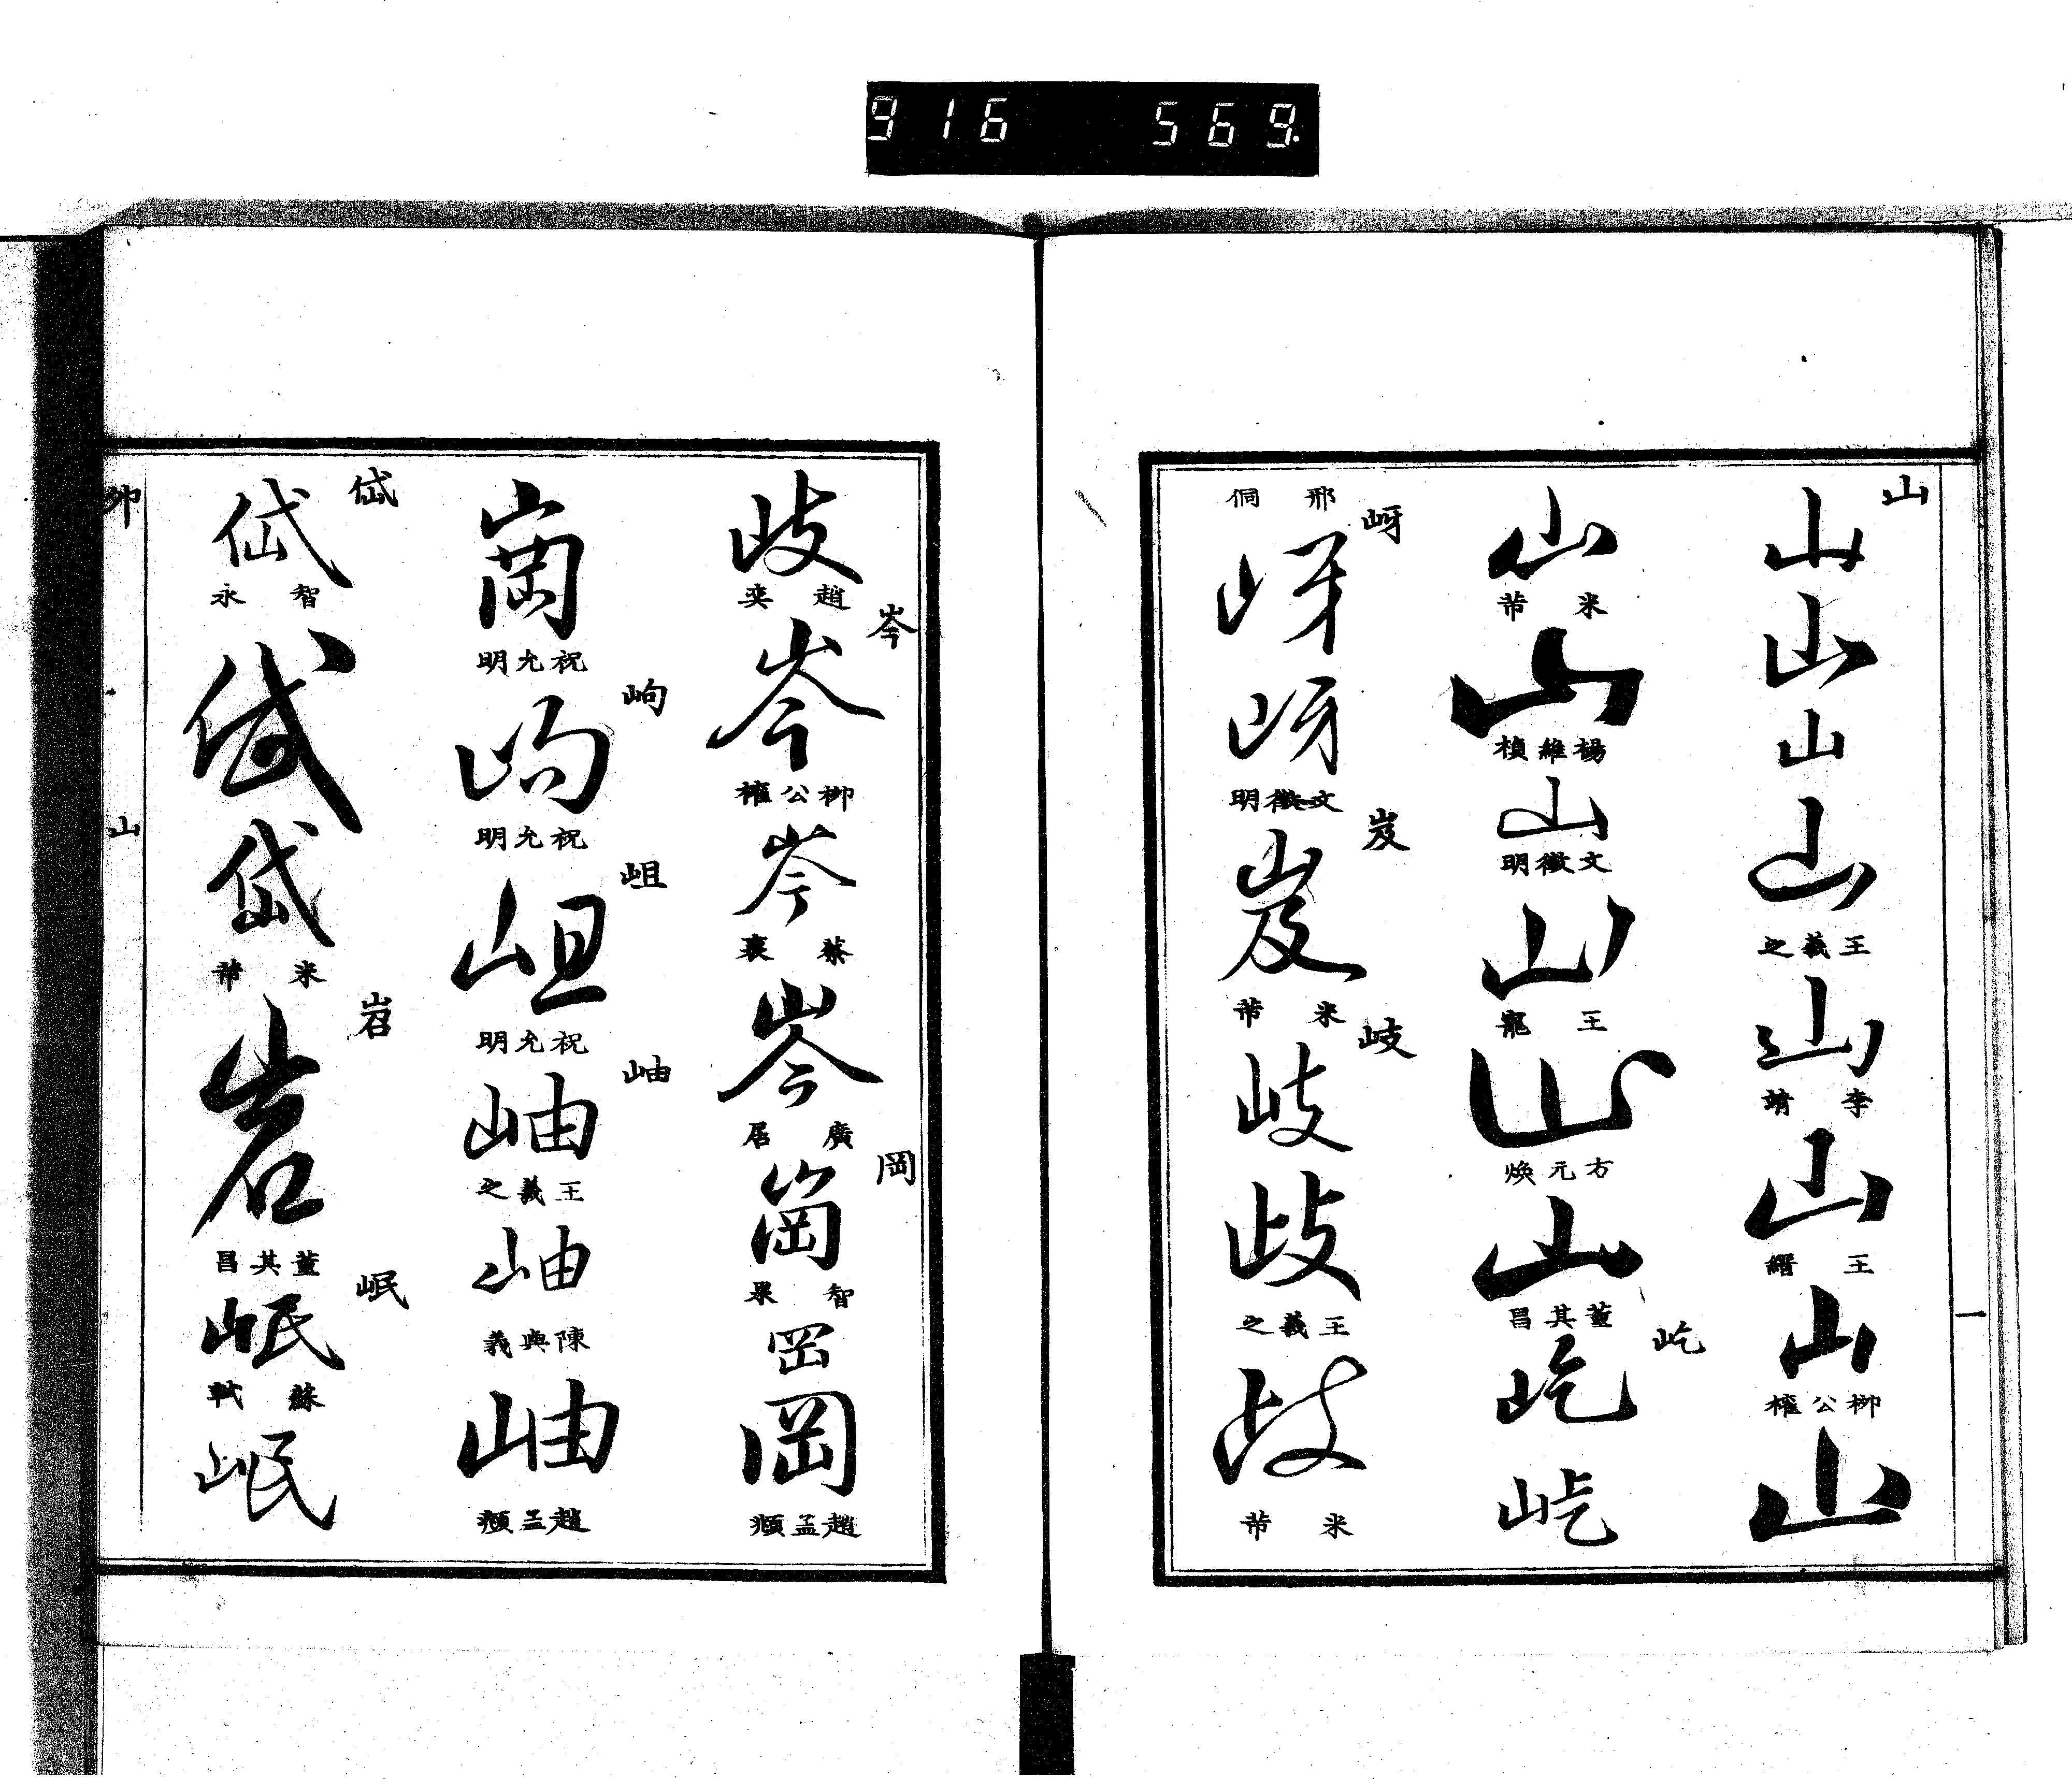 916 569.
山
山 山 山 山 王羲之 山 李靖 山 王縉 山 柳公權 山
一
山 米芾 山 楊維楨 山 文徵明 山 王寵 山 方元煥 山 董其昌
屹
屹 屹
岈
邢侗 岈 岈 文徵明
岌
岌 米芾
岐
岐 岐 王羲之 岐 米芾
岐 趙奕
岑
岑 柳公權 岑 蔡襄 岑 廣居
岡
崗 智果 岡 岡 趙孟頫
崗 祝允明
岣
岣 祝允明
岨
岨 祝允明
岫
岫 王羲之 岫 陳與義 岫 趙孟頫
岱
岱 智永 岱 岱 米芾
岧
岩 董其昌
岷
岷 蘇軾 岷
山